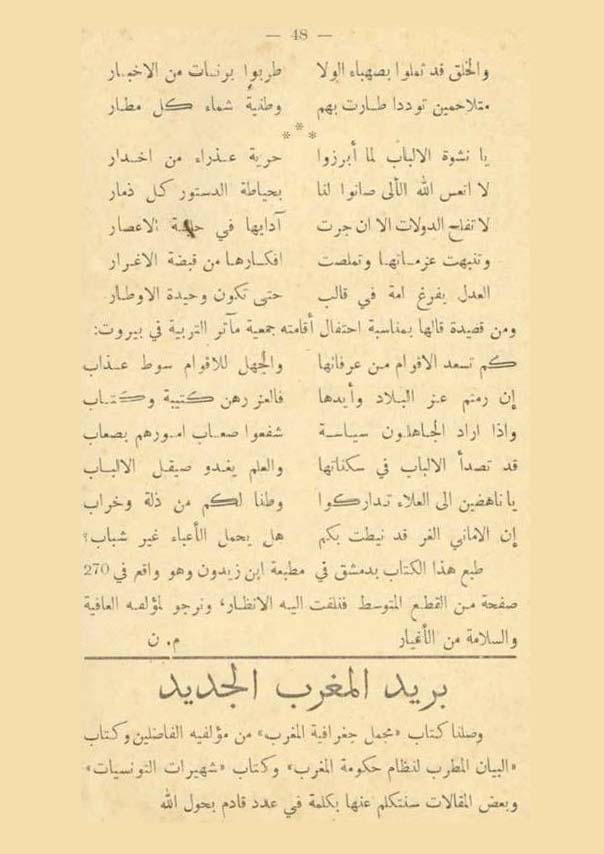 — 48 —
والخلق قد ثملوا بصهباء الولا طربوا برنات من الاخبار
متلاحمين توددا طارت بهم وطنية شماء كل مطار
* * *
يا نشوة الالباب لما أبرزوا حرية عذراء من اخدار
لا انعس الله الألى صانوا لنا بحياطة الدستور كل ذمار
لا تفلح الدولات الا ان جرت آدابها في الاعصار
وتنبهت عزماتها وتملصت افكارها من قبضة الاغرار
العدل يفرغ امة في قالب حتى تكون وحيدة الاوطار
ومن قصيدة قالها بمناسبة احتفال أقامته جمعية مآثر التربية في بيروت:
كم تسعد الاقوام من عرفانها والجهل للاقوام سوط عذاب
إن رمتم عز البلاد وأيدها فالعز رهن كتيبة وكتاب
واذا اراد الجاهلون سياسة شفعوا صعاب امورهم بصعاب
قد تصدأ الالباب في سكناتها والعلم يغدو صيقل الالباب
يا ناهضين الى العلاء تداركوا وطنا لكم من ذلة وخراب
إن الاماني الغر قد نيطت بكم هل يحمل الأعباء غير شباب؟
طبع هذا الكتاب بدمشق في مطبعة ابن زيدون وهو واقع في 270
صفحة من القطع المتوسط فنلفت اليه الانظار، ونرجو لمؤلفه العافية
والسلامة من الأغيار م. ن
بريد المغرب الجديد
وصلنا كتاب «مجمل جغرافية المغرب» من مؤلفيه الفاضلين وكتاب
«البيان المطرب لنظام حكومة المغرب» وكتاب «شهيرات التونسيات»
وبعض المقالات سنتكلم عنها بكلمة في عدد قادم بحول الله